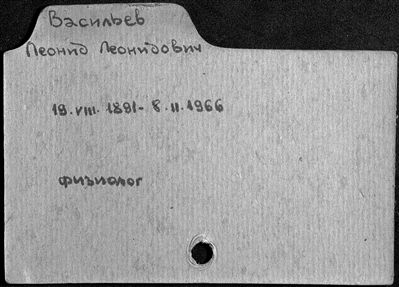 Васильев
Леонид Леонидович
19.VIII.1891-8.II.1966
физиолог